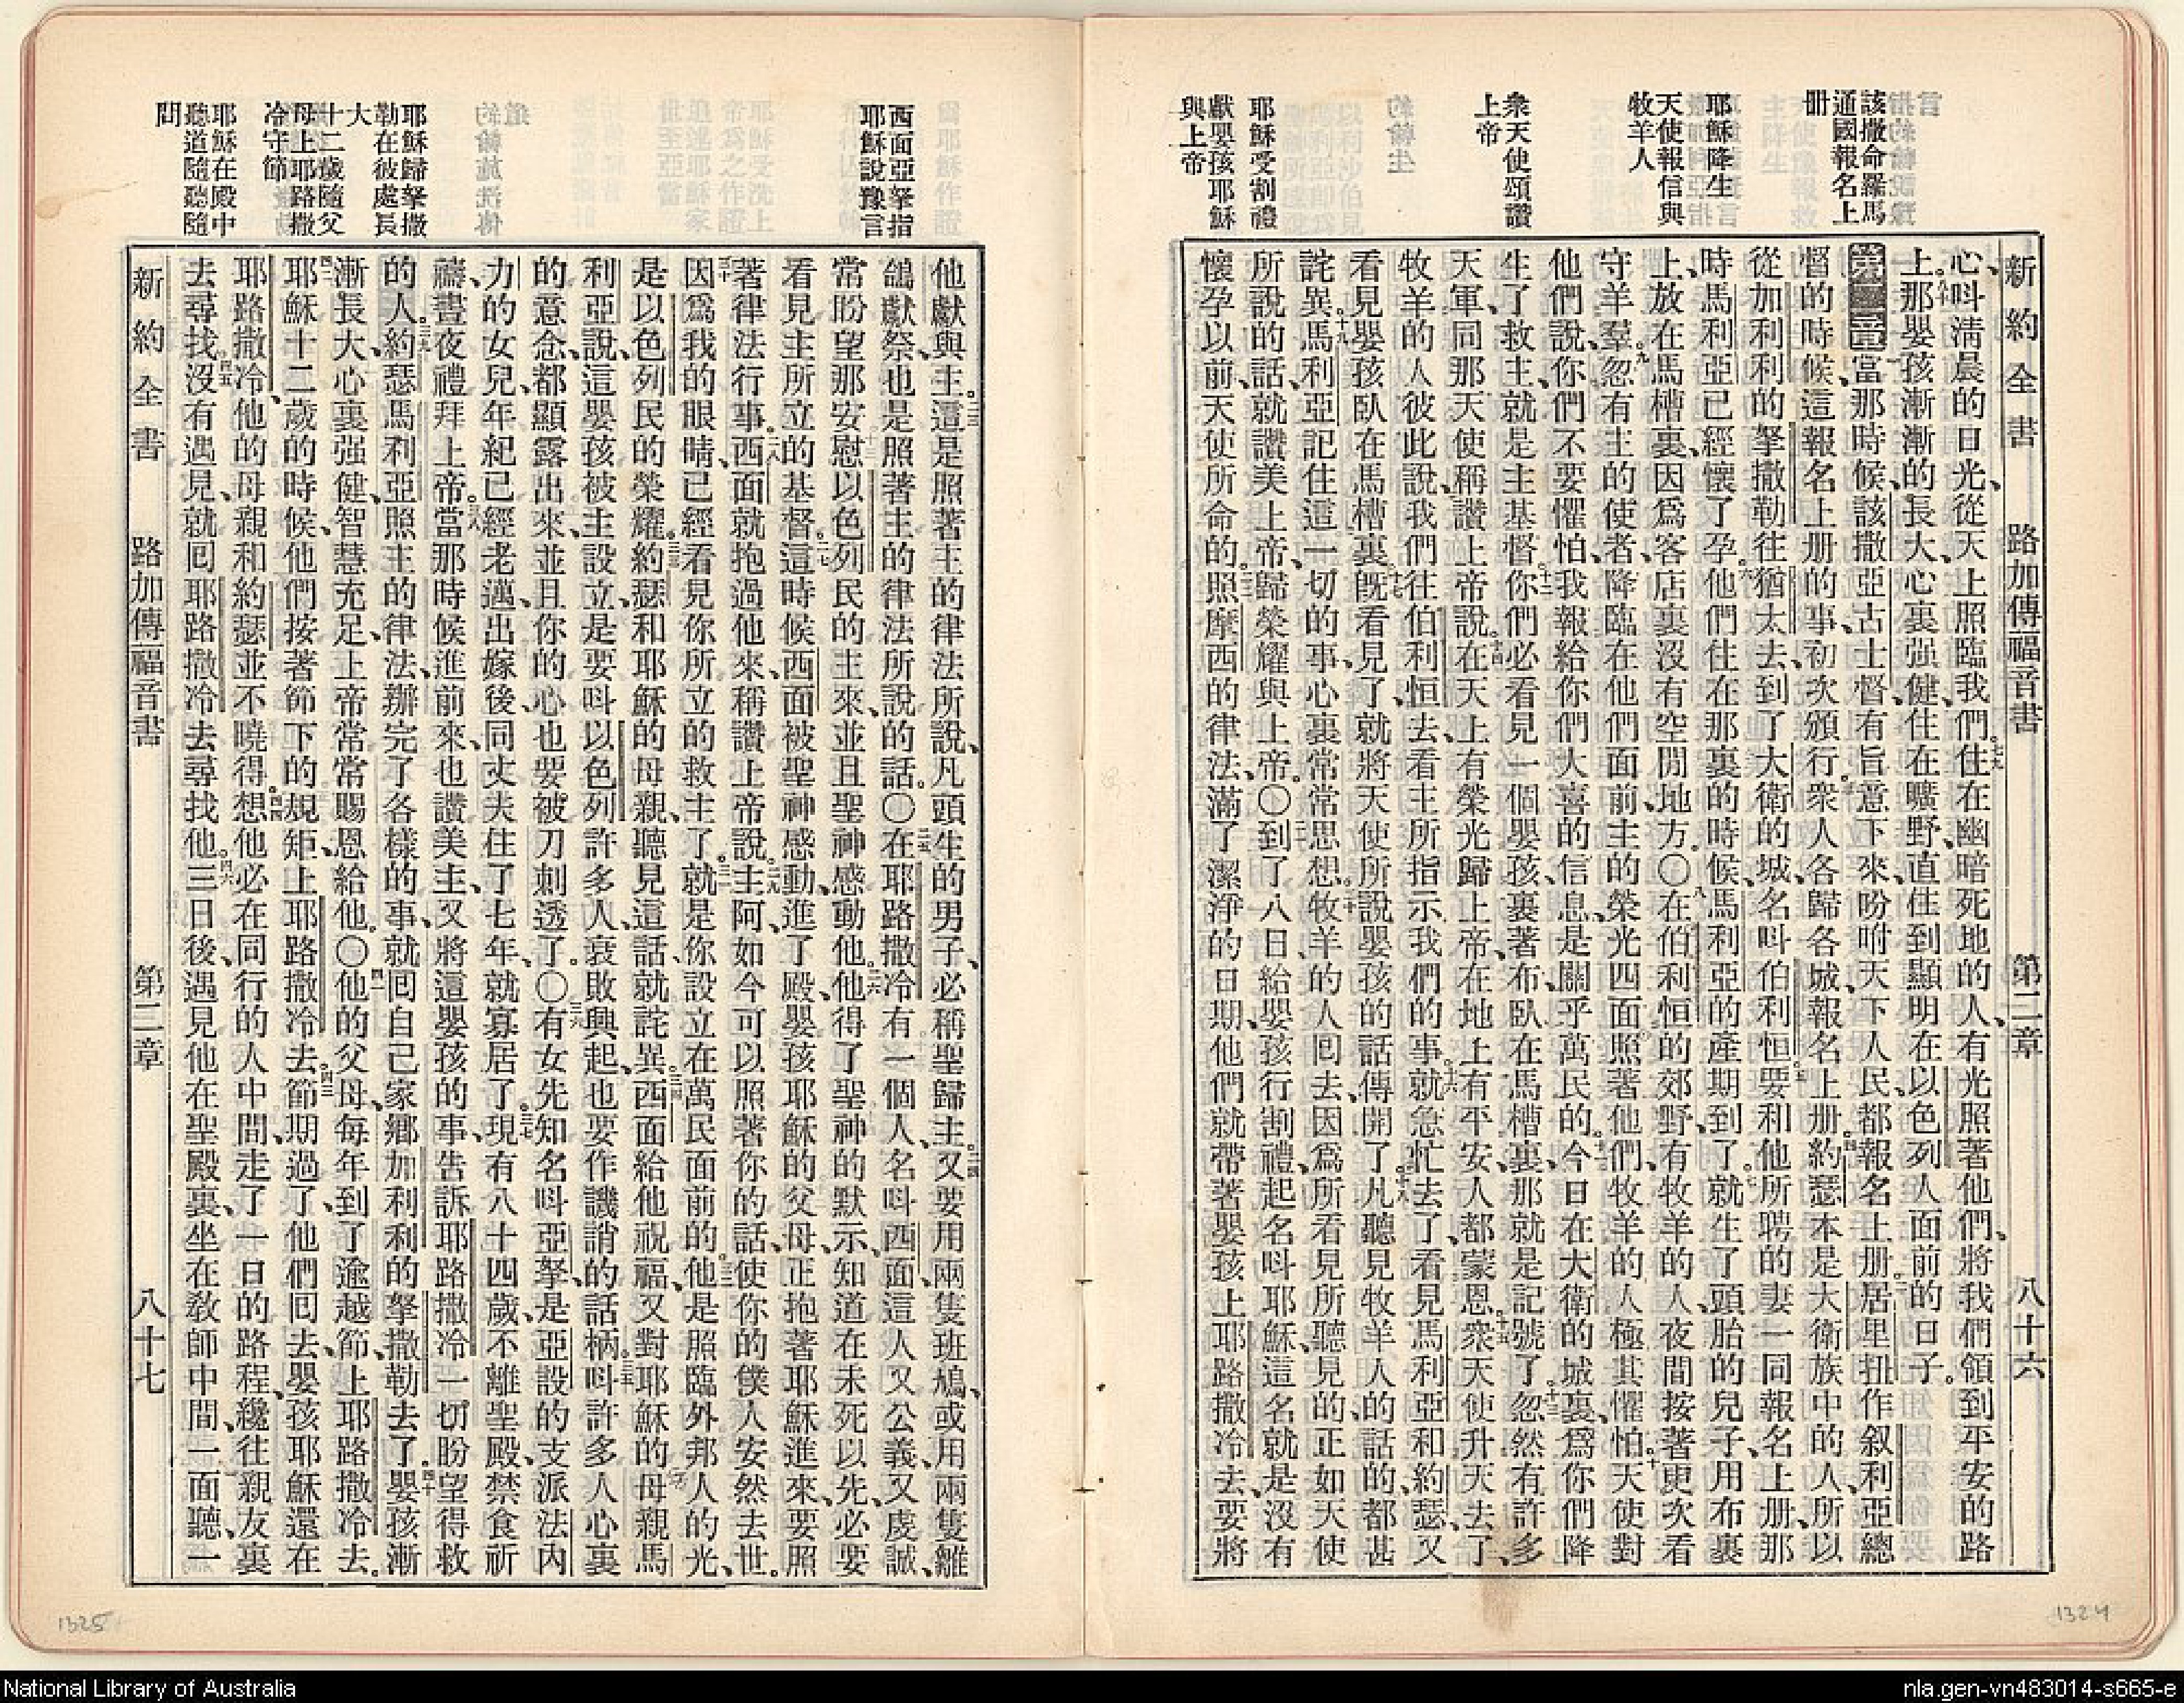 新約全書 路加傳福音書 第二章 八十六
該撒命羅馬
通國報名上
册
耶穌降生
天使報信與
牧羊人
衆天使頌讚
上帝
耶穌受割禮
獻嬰孩耶穌
與上帝
心、呌淸晨的日光、從天上照臨我們。住在幽暗死地的人、有光照著他們、將我們領到平安的路
上。那嬰孩漸漸的長大、心裏强健、住在曠野、直住到顯明在以色列人面前的日子。
第二章當那時候、該撒亞古士督有旨意下來、吩咐天下人民、都報名上册。居里扭作叙利亞總
督的時候、這報名上册的事、初次頒行。衆人各歸各城、報名上册。約瑟本是大衛族中的人、所以
從加利利的拏撒勒往猶太去、到了大衛的城、名呌伯利恒。要和他所聘的妻一同報名上册、那
時馬利亞已經懷了孕。他們往在那裏的時候、馬利亞的產期到了。就生了頭胎的兒子、用布裹
上、放在馬槽裏、因爲客店裏沒有空閒地方。〇在伯利恒的郊野、有牧羊的人、夜間按著更次看
守羊羣。忽有主的使者、降臨在他們面前、主的榮光四面照著他們、牧羊的人極其懼怕。天使對
他們說、你們不要懼怕、我報給你們大喜的信息、是關乎萬民的。今日在大衛的城裏、爲你們降
生了救主、就是主基督。你們必看見一個嬰孩、裹著布、臥在馬槽裏、那就是記號了。忽然有許多
天軍、同那天使稱讚上帝說。在天上有榮光歸上帝、在地上有平安、人都蒙恩。衆天使升天去了、
牧羊的人彼此說、我們往伯利恒去、看主所指示我們的事。就急忙去了、看見馬利亞和約瑟、又
看見嬰孩臥在馬槽裏。旣看見了、就將天使所說嬰孩的話傳開了。凡聽見牧羊人的話的、都甚
詫異。馬利亞記住這一切的事、心裏常常思想。牧羊的人回去、因爲所看見所聽見的、正如天使
所說的話、就讚美上帝、歸榮耀與上帝。〇到了八日、給嬰孩行割禮、起名呌耶穌、這名就是沒有
懷孕以前、天使所命的。照摩西的律法、滿了潔淨的日期、他們就帶著嬰孩上耶路撒冷去、要將
西面亞拏指
耶穌說豫言
耶穌歸拏撒
勒在彼處長
大
十二歲隨父
母上耶路撒
冷守節
耶穌在殿中
聽道隨聽隨
問
他獻與主。這是照著主的律法所說、凡頭生的男子、必稱聖歸主。又要用兩隻班鳩、或用兩隻雛
鴿獻祭、也是照著主的律法所說的話。〇在耶路撒冷有一個人、名呌西面、這人又公義、又虔誠、
常盼望那安慰以色列民的主來、並且聖神感動他。他得了聖神的默示、知道在未死以先、必要
看見主所立的基督。這時候西面被聖神感動、進了殿、嬰孩耶穌的父母、正抱著耶穌進來、要照
著律法行事。西面就抱過他來、稱讚上帝說。主阿、如今可以照著你的話、使你的僕人安然去世。
因爲我的眼睛、已經看見你所立的救主了。就是你設立在萬民面前的。他是照臨外邦人的光、
是以色列民的榮耀。約瑟和耶穌的母親、聽見這話、就詫異。西面給他祝福、又對耶穌的母親馬
利亞說、這嬰孩被主設立、是要呌以色列許多人、衰敗興起、也要作譏誚的話柄。呌許多人心裏
的意念、都顯露出來、並且你的心也要被刀刺透了。〇有女先知名呌亞拏、是亞設的支派法內
力的女兒、年紀已經老邁、出嫁後同丈夫住了七年、就寡居了。現有八十四歲、不離聖殿、禁食祈
禱、晝夜禮拜上帝。當那時候進前來、也讚美主、又將這嬰孩的事、告訴耶路撒冷一切盼望得救
的人。約瑟馬利亞照主的律法、辦完了各樣的事、就回自己家鄉加利利的拏撒勒去了。嬰孩漸
漸長大、心裏强健、智慧充足、上帝常常賜恩給他。〇他的父母、每年到了逾越節、上耶路撒冷去。
耶穌十二歲的時候、他們按著節下的規矩、上耶路撒冷去。節期過了、他們回去、嬰孩耶穌還在
耶路撒冷、他的母親和約瑟並不曉得。想他必在同行的人中間、走了一日的路程、纔往親友裏
去尋找。沒有遇見、就回耶路撒冷去尋找他。三日後、遇見他在聖殿裏、坐在敎師中間、一面聽、一
新約全書 路加傳福音書 第二章 八十七
1325
1324
National Library of Australia
nla.gen-vn483014-s665-e